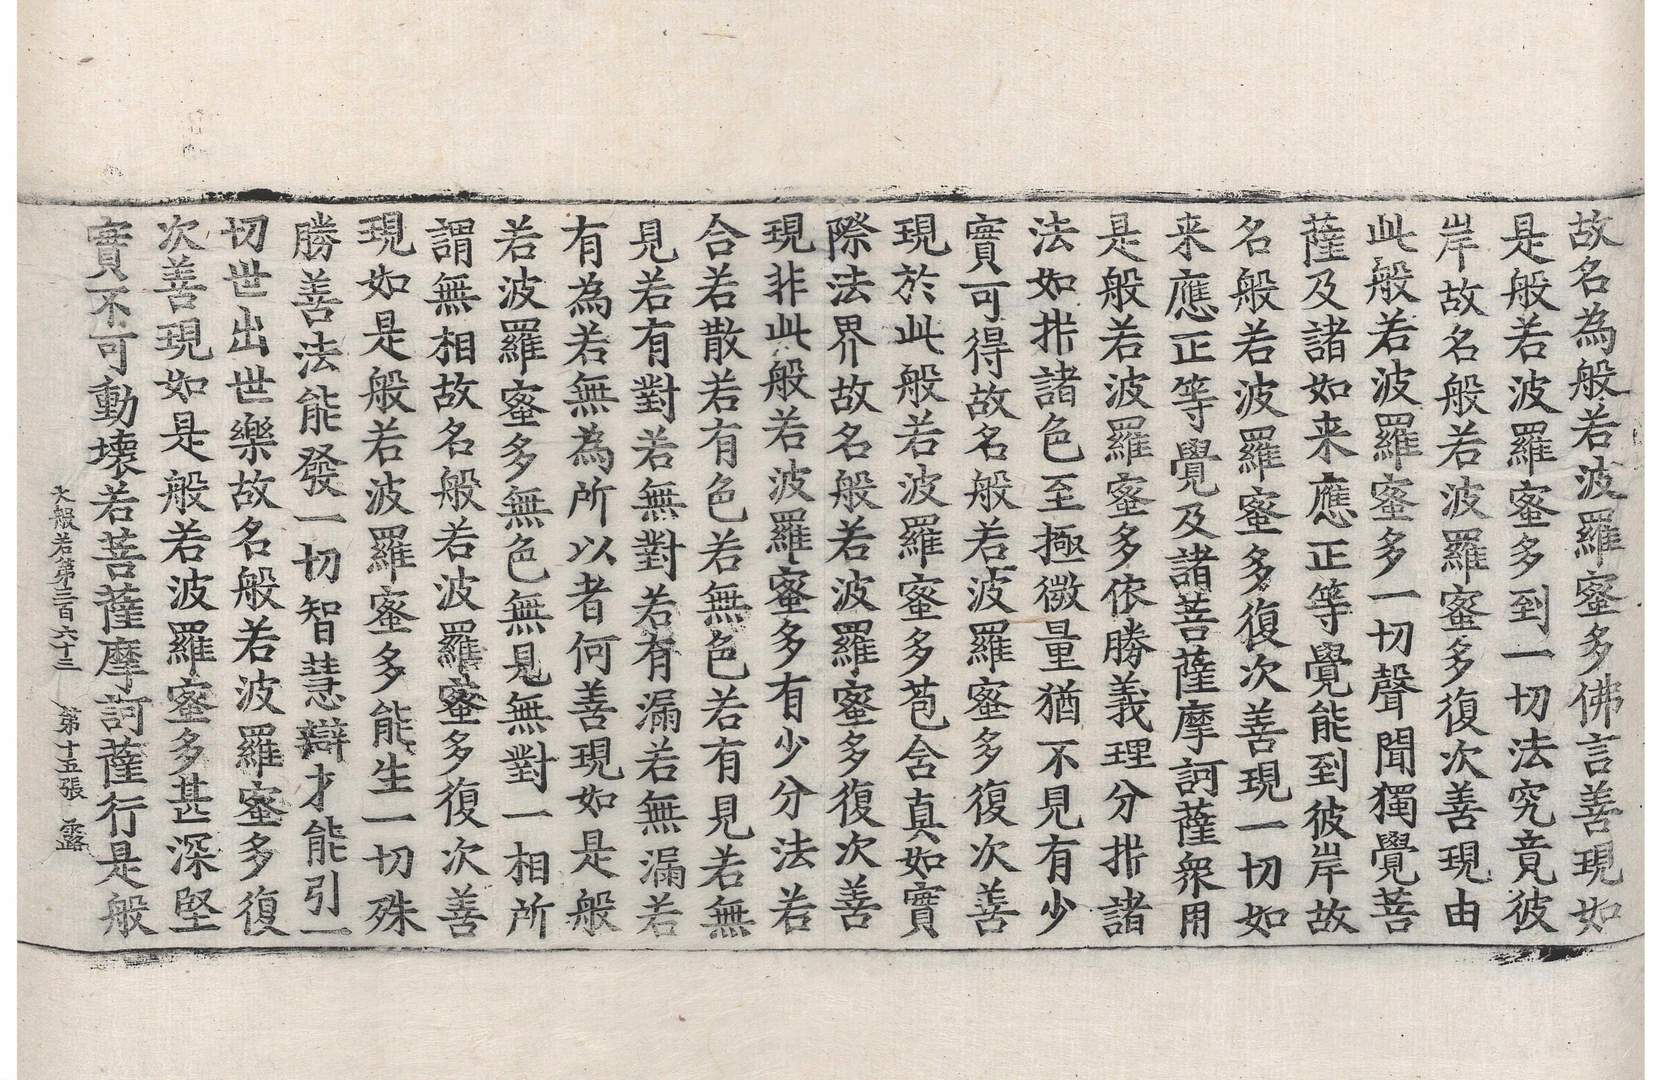 故名為般若波羅蜜多佛言善現如
是般若波羅蜜多到一切法究竟彼
岸故名般若波羅蜜多復次善現由
此般若波羅蜜多一切聲聞獨覺菩
薩及諸如来應正等覺能到彼岸故
名般若波羅蜜多復次善現一切如
来應正等覺及諸菩薩摩訶薩衆用
是般若波羅蜜多依勝義理分㭊諸
法如㭊諸色至極微量猶不見有少
實可得故名般若波羅蜜多復次善
現於此般若波羅蜜多苞含真如實
際法界故名般若波羅蜜多復次善
現非此般若波羅蜜多有少分法若
合若散若有色若無色若有見若無
見若有對若無對若有漏若無漏若
有為若無為所以者何善現如是般
若波羅蜜多無色無見無對一相所
謂無相故名般若波羅蜜多復次善
現如是般若波羅蜜多能生一切殊
勝善法能發一切智慧辯才能引一
切世出世樂故名般若波羅蜜多復
次善現如是般若波羅蜜多甚深堅
實不可動壞若菩薩摩訶薩行是般
大般若第三百六十三 第十五張 露